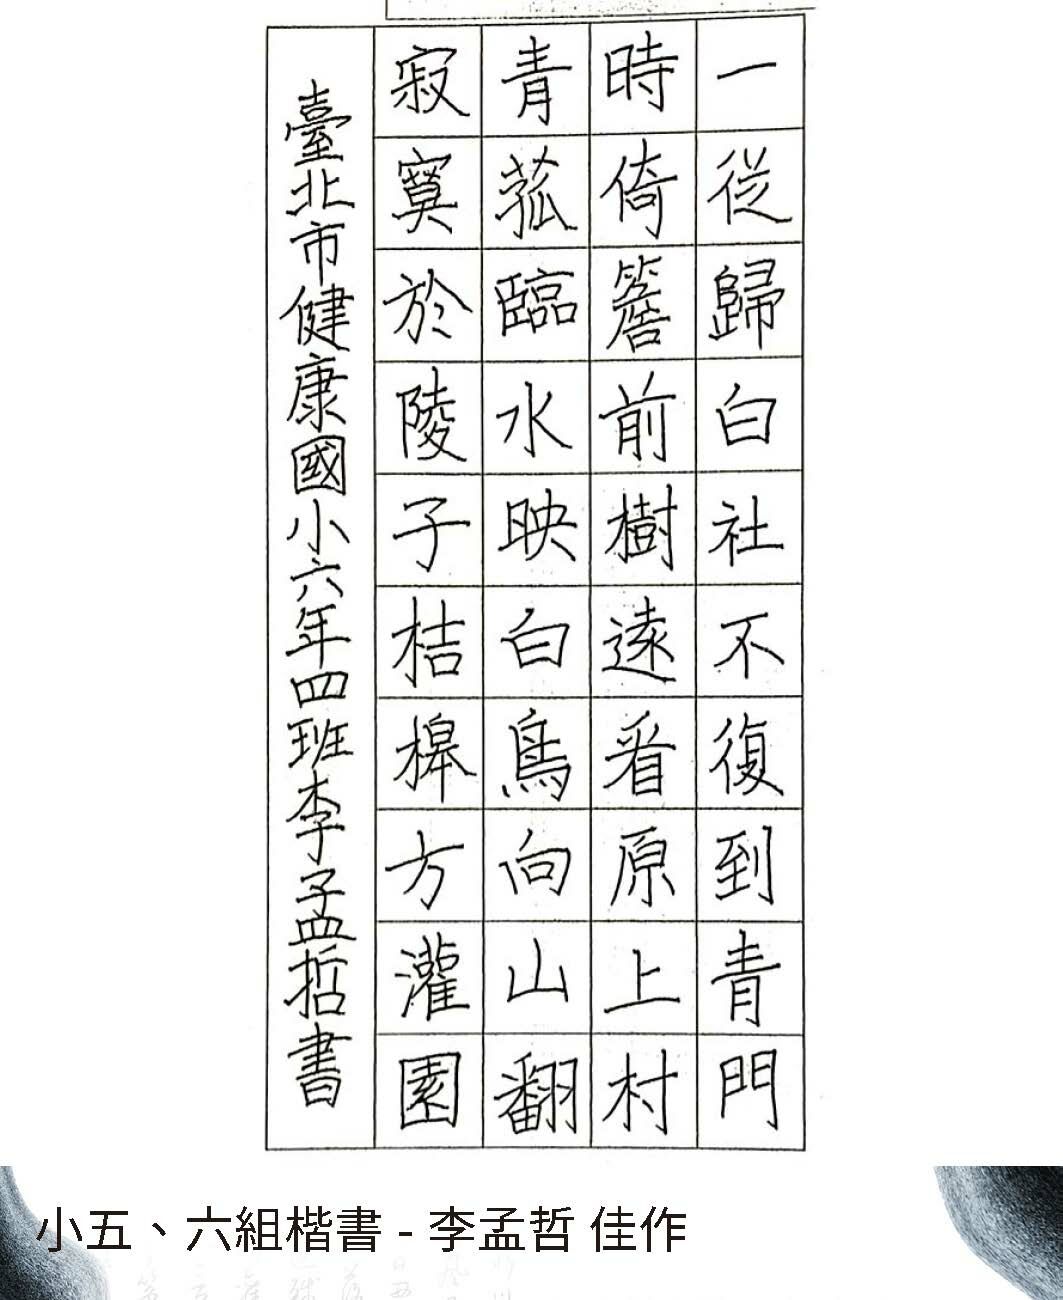 一從歸白社不復到青門
時倚簷前樹遠看原上村
青菰臨水映白鳥向山翻
寂寞於陵子桔槔方灌園
臺北市健康國小六年四班李孟哲書
小五、六組楷書 - 李孟哲 佳作